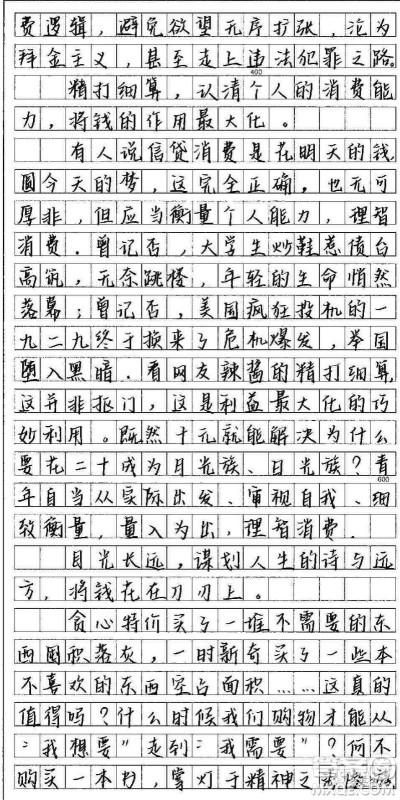 费逻辑，避免欲望无序扩张，沦为
拜金主义，甚至走上违法犯罪之路。
400
精打细算，认清个人的消费能
力，将钱的作用最大化。
有人说信贷消费是花明天的钱，
圆今天的梦，这完全正确，也无可
厚非，但应当衡量个人能力，理智
消费.曾记否，大学生炒鞋惹债台
高筑，无奈跳楼，年轻的生命悄然
落幕；曾记否，美国疯狂投机的一
九二九终于换来了危机爆发，举国
堕入黑暗.看网友辣酱的精打细算，
这并非抠门，这是利益最大化的巧
妙利用。既然十元就能解决为什么
要花二十成为月光族、日光族？青
600
年自当从实际出发、审视自我、细
致衡量，量入为出，理智消费.
目光长远，谋划人生的诗与远
方，将钱花在刀刃上。
贪心特价买了一堆不需要的东
西囤积落灰，一时新奇买了一些本
不喜欢的东西空占面积……这真的
值得吗？什么时候我们购物才能从
“我想要”走到“我需要”？何不
购买一本书，掌灯于精神之